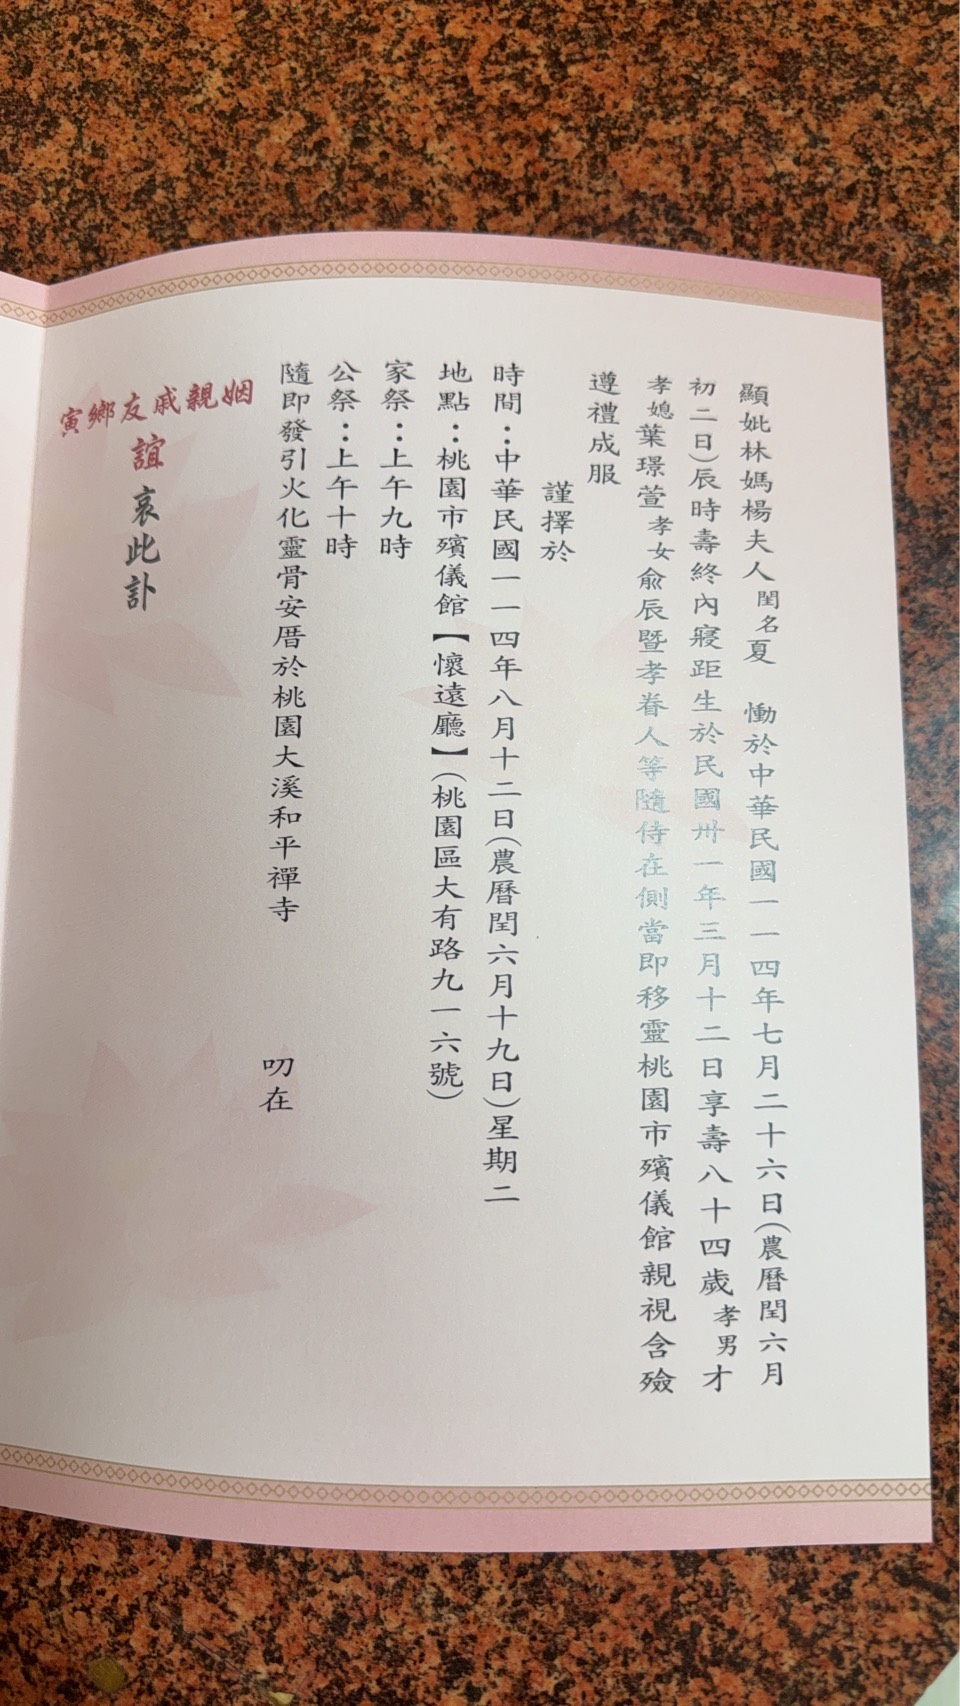 顯妣林媽楊夫人閨名夏　慟於中華民國一一四年七月二十六日(農曆閏六月
初二日)辰時壽終內寢距生於民國卅一年三月十二日享壽八十四歲孝男才
孝媳葉璟萱孝女俞辰暨孝眷人等隨侍在側當即移靈桃園市殯儀館親視含殮
遵禮成服
謹擇於
時間：中華民國一一四年八月十二日(農曆閏六月十九日)星期二
地點：桃園市殯儀館【懷遠廳】(桃園區大有路九一六號)
家祭：上午九時
公祭：上午十時
隨即發引火化靈骨安厝於桃園大溪和平禪寺　叨在
姻親戚友鄉寅
誼　哀此訃